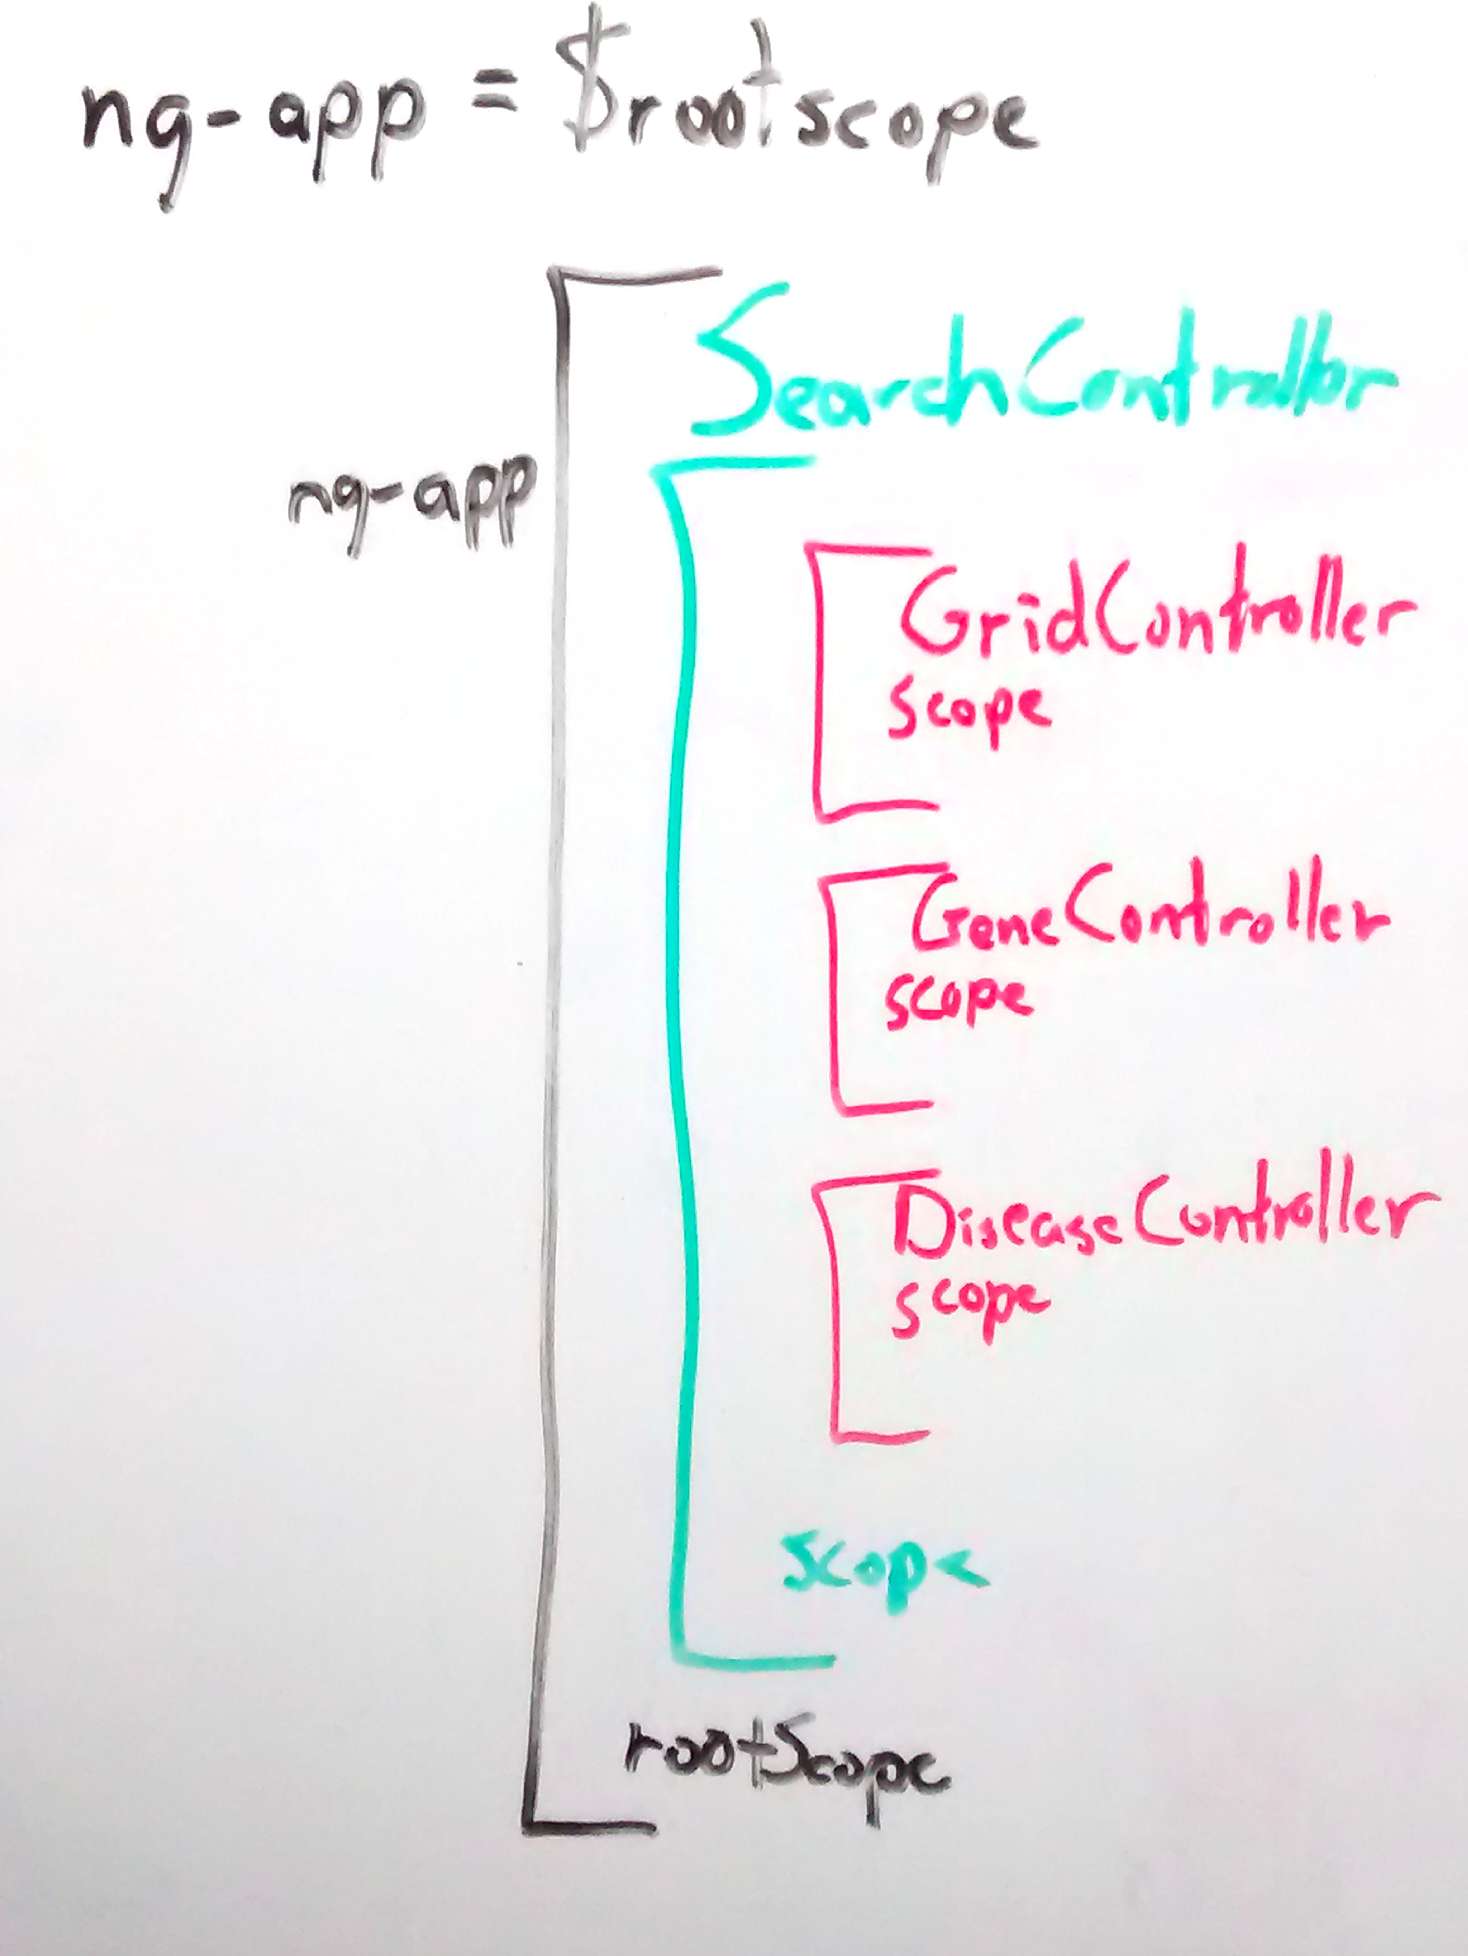 ng-app = $rootscope
SearchController
ng-app
GridController
scope
GeneController
scope
DiseaseController
scope
scope
rootScope